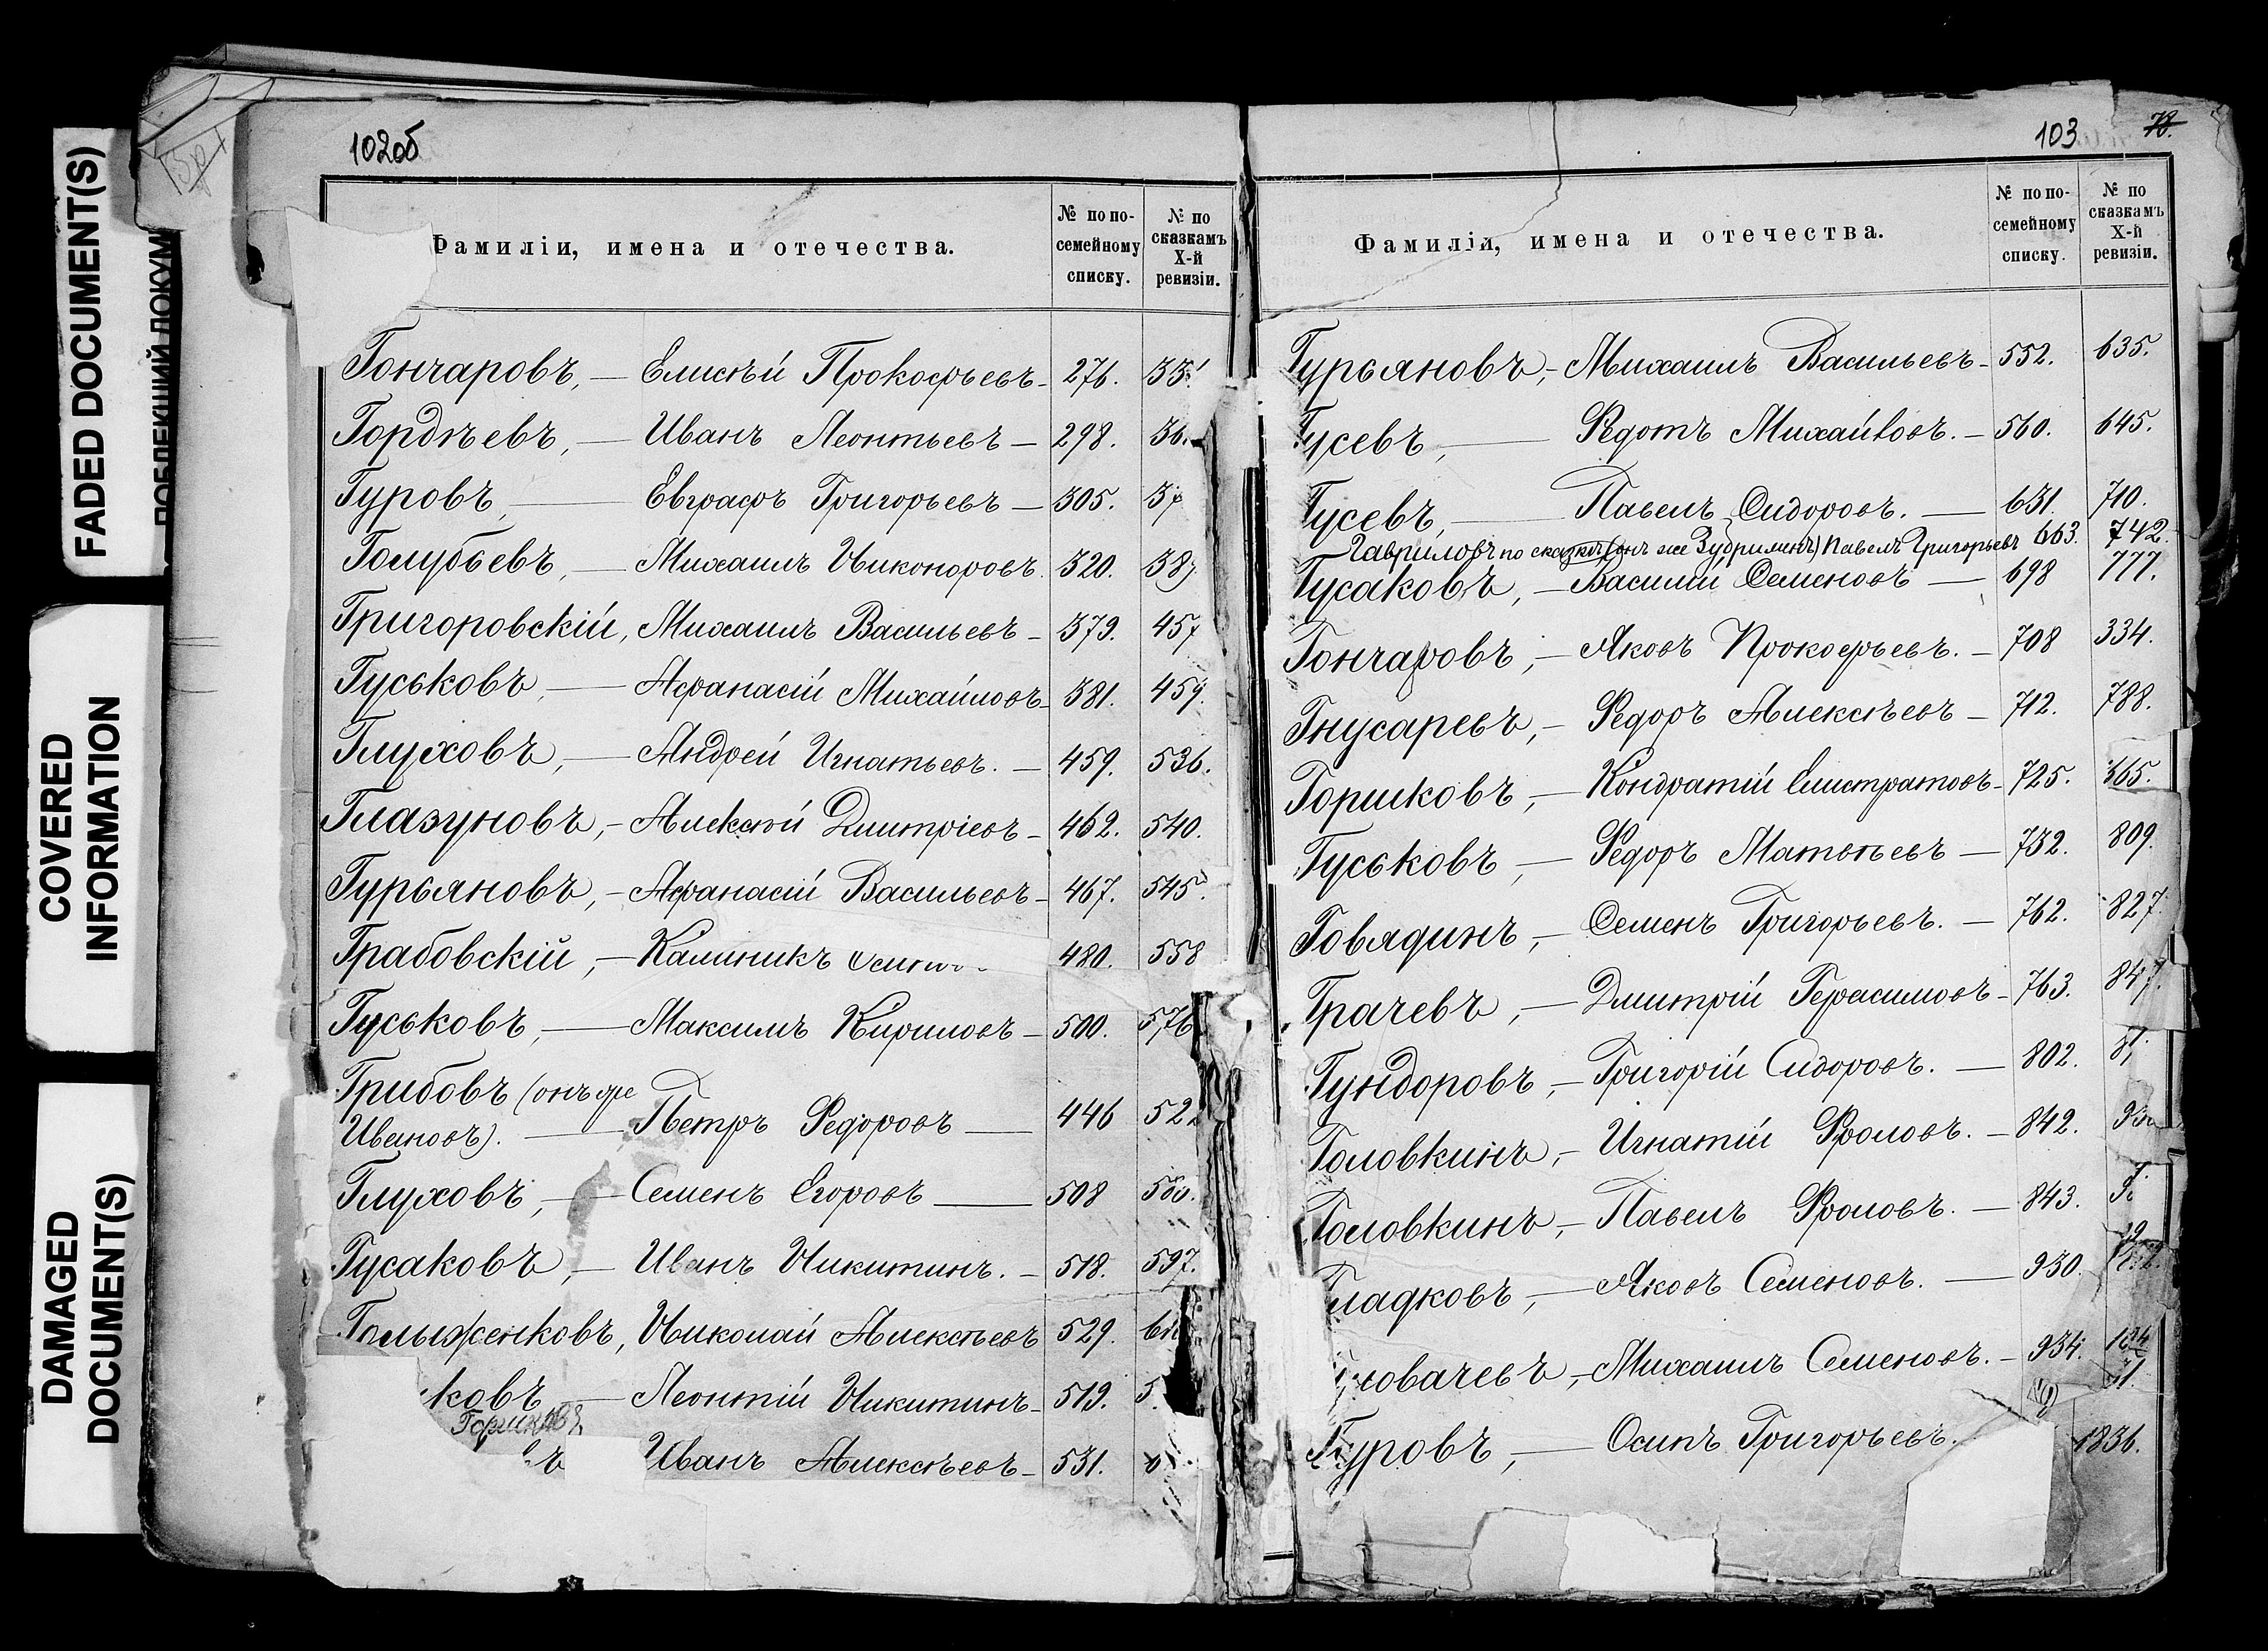 FADED DOCUMENT(S)
COVERED
INFORMATION
DAMAGED
DOCUMENT(S)
102об
Фамиліи, имена и отечества.
№ по по-
семейному
списку.
№ по
сказкамъ
X-й
ревизіи.
Гончаровъ, — Елисѣй Прокофьевъ - 276.
Гордѣевъ, — Иванъ Леонтьевъ — 298.
Гуровъ, — Евграфъ Григорьевъ — 305.
Голубьевъ, — Михаилъ Никоноровъ. 320.
Григоровскій, Михаилъ Васильевъ - 379. 457
Гуськовъ, — Афанасій Михайловъ - 381. 459.
Глуховъ, — Андрей Игнатьевъ. — 459. 536.
Глазуновъ, - Алексѣй Дмитріевъ - 462. 540.
Гурьяновъ, - Афанасій Васильевъ - 467. 545.
Грабовскій, - Калиникъ 480. 558
Гуськовъ, — Максимъ Кириловъ - 500. 576
Грибовъ (онъ же
Ивановъ). — Петръ Федоровъ — 446 522
Глуховъ, — Семенъ Егоровъ — 508
Гусаковъ, — Иванъ Никитинъ. - 518. 597.
Голыженковъ, Николай Алексѣевъ 529.
ковъ — Леонтій Никитинъ - 519.
Горшковъ
ъ Иванъ Алексѣевъ - 531.
103 78.
Фамиліи, имена и отечества.
№ по по-
семейному
списку.
№ по
сказкамъ
X-й
ревизіи.
Гурьяновъ, - Михаилъ Васильевъ - 552. 635.
Гусевъ, — Федотъ Михайловъ. - 560. 645.
Гусевъ, — Павелъ Сидоровъ. — 631. 710.
Гавриловъ по сказкѣ (онъ же Зубрилинъ) Павелъ Григорьевъ 663. 742.
Гусаковъ, - Василій Семеновъ — 698 777.
Гончаровъ, - Яковъ Прокофьевъ. - 708 334.
Гнусаревъ, - Федоръ Алексѣевъ - 712. 788.
Горшковъ, - Кондратій Елистратовъ - 725. 365.
Гуськовъ, — Федоръ Матвѣевъ — 732. 809.
Говядинъ, - Семенъ Григорьевъ. - 762. 827.
Грачевъ, - Дмитрій Герасимовъ - 763. 847.
Гундоровъ, - Григорій Сидоровъ. — 802.
Головкинъ, - Игнатій Фроловъ. - 842.
Головкинъ, - Павелъ Фроловъ. - 843.
Гладковъ, — Яковъ Семеновъ. — 930.
Головачевъ, - Михаилъ Семеновъ. - 934.
Гуровъ, — Осипъ Григорьевъ. 1836.